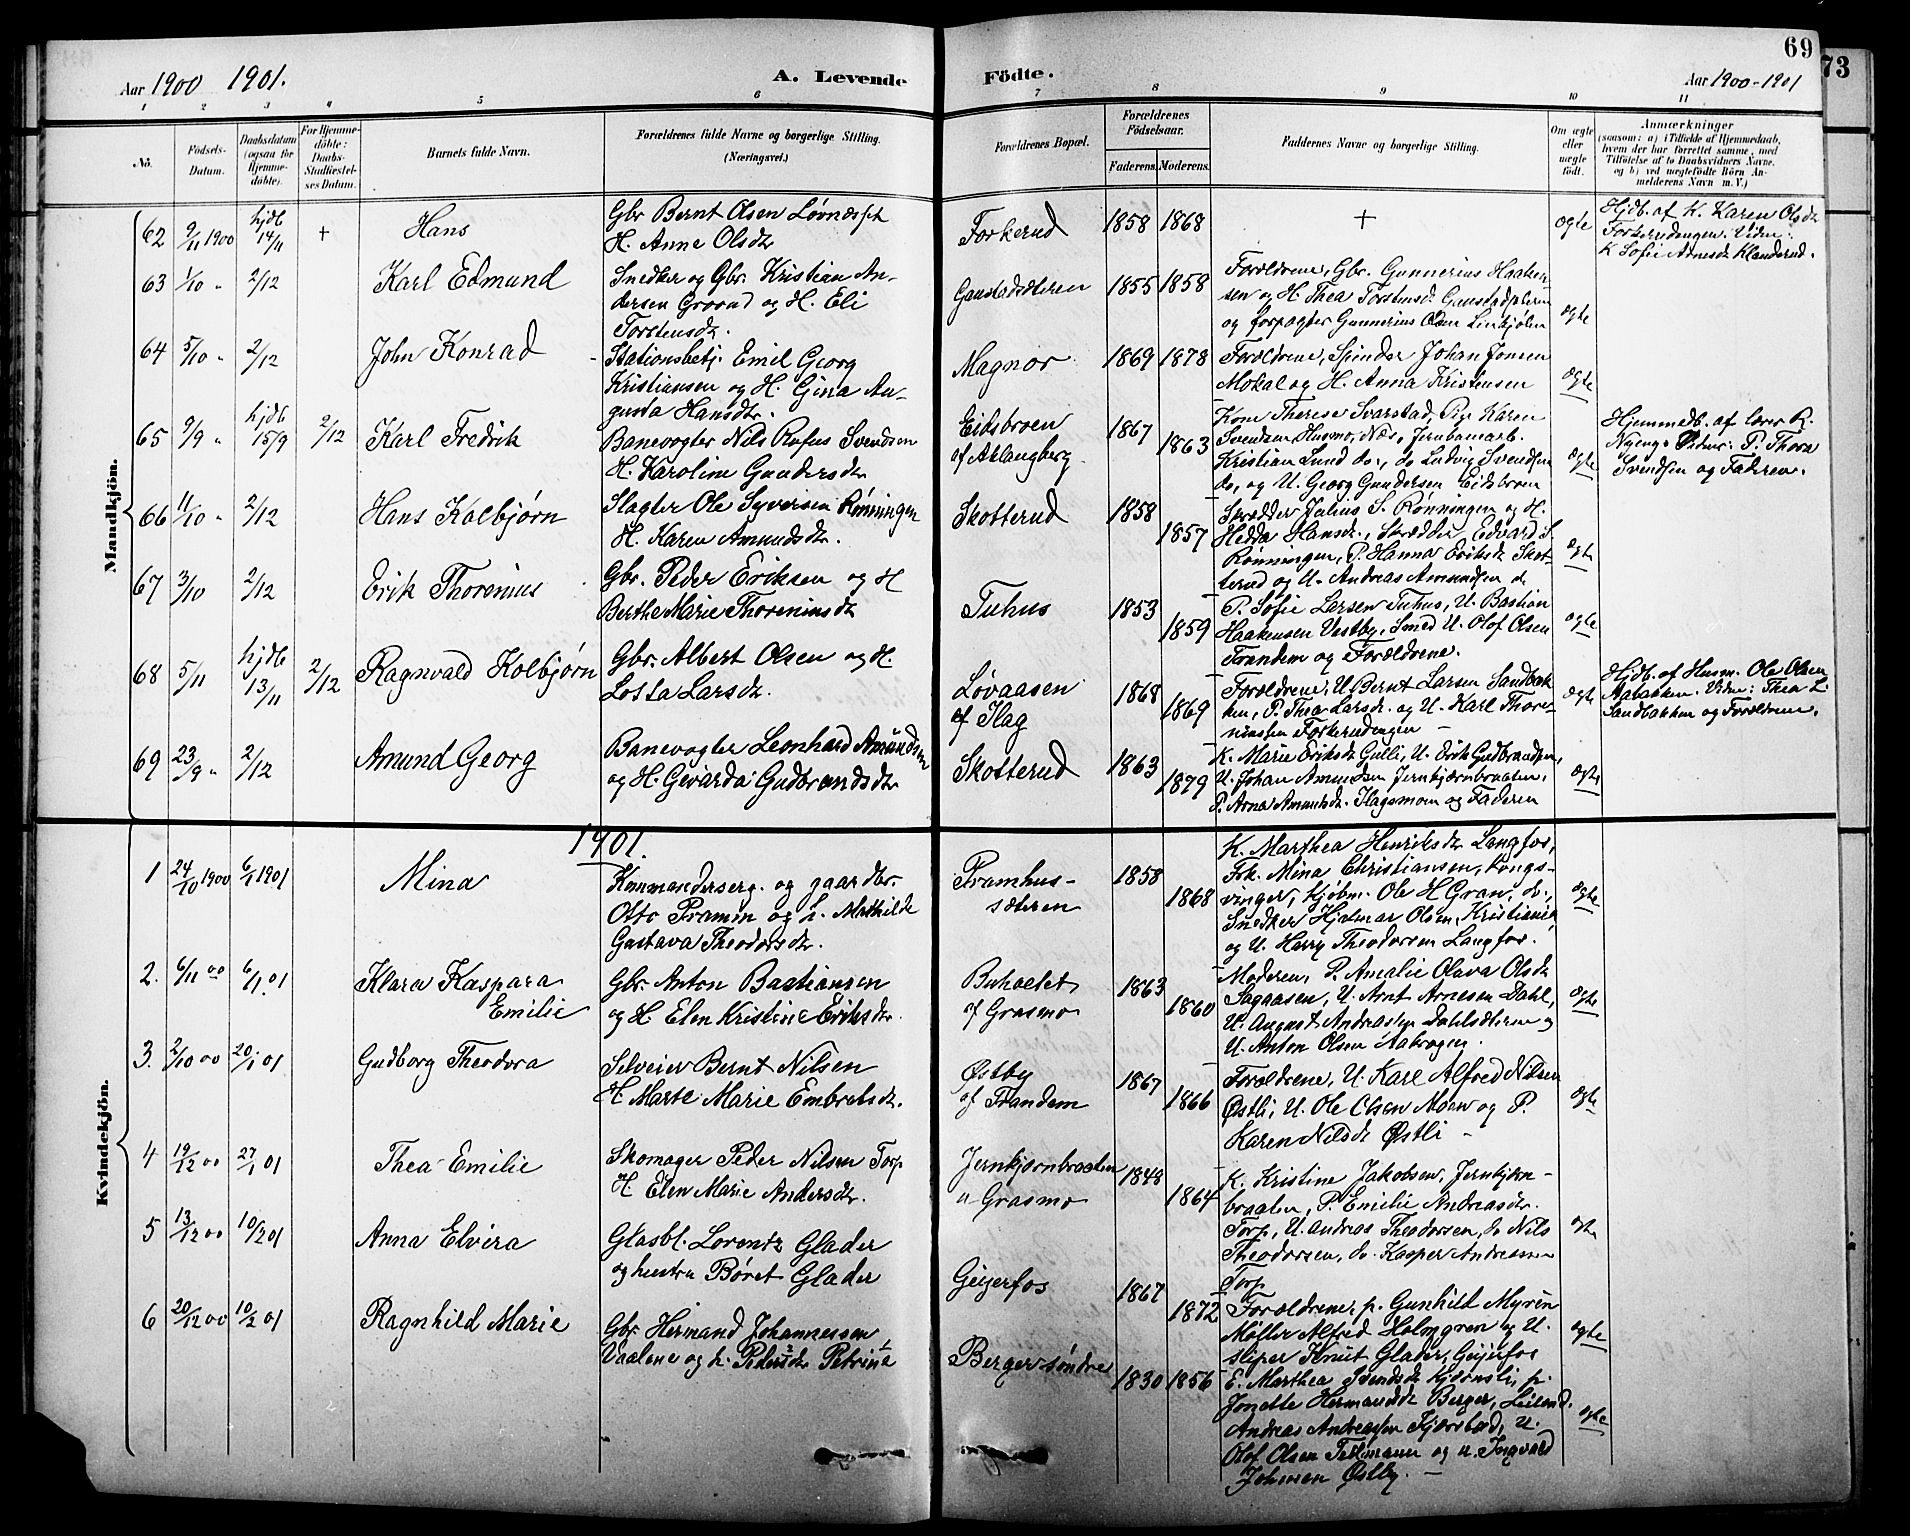 69
73
Aar 1900 1901.
A. Levende
Födte.
Aar 1900-1901
1 2 3 4 5 6 7 8 9 10 11
No.
Födsels-
Datum.
Daabsdatum
(ogsaa for
Hjemme-
döbte).
For Hjemme-
döbte:
Daabs-
Stadfæstel-
ses Datum.
Barnets fulde Navn.
Forældrenes fulde Navne og borgerlige Stilling.
(Næringsvei.)
Forældrenes Bopæl.
Forældrenes
Födselsaar.
Faderens. Moderens.
Faddernes Navne og borgerlige Stilling.
Om ægte
eller
uægte
födt.
Anmærkninger
(saasom: a) i Tilfælde af Hjemmedaab,
hvem der har forrettet samme, med
Tilföielse af to Daabsvidners Navne,
og b) ved uægtefödte Börn An-
melderens Navn m. V.)
Mandkjön.
62 9/11 1900 hjdb 14/11 + Hans
Gbr Bernt Olsen Løvnæspt
H. Anne Olsdtr
Forkerud 1858 1868 + ægte
Hjdb. af K. Karen Olsdtr
Forkerudengen. Vidn:
K Sofie Arnesdtr Klanderud.
63 1/10 " 2/12 Karl Edmund
Snedker og Gbr. Kristian An-
dersen Grorud og H. Eli
Torstensdtr.
Gaustadsæteren 1855 1858
Forældrene, Gbr. Gunnerius Haaken-
sen og H. Thea Torstensd. Gaustadsæteren
og forpagter Gunnerius Olsen Linkjølen
ægte
64 5/10 " 2/12 John Konrad
Stationsbetj. Emil Georg
Kristiansen og H. Gina Au-
gusta Hansdtr.
Magnor 1869 1878
Forældrene, Spinder Johan Jonsen
Mokal og H. Anna Kristensen
ægte
65 9/9 " hjdb 15/9 2/12 Karl Fredrik
Banevogter Nils Rufus Svendsen
H. Karoline Gundersdtr
Eidsbroen
af Aklangberg
1867 1863
Kone Therese Svarstad, Pige Karen
Svendsen Husmo, Næs, Jernbanearb.
Kristian Lund do., do Ludvig Svendsen
do, og U. Georg Gundersen Eidsbroen
ægte
Hjemmedb. af lærer R.
Nyeng. Vidner: P. Thora
Svendsen og Faderen.
66 11/10 " 2/12 Hans Kolbjørn
Slagter Ole Syversen Rønningen
H. Karen Amundsdtr.
Skotterud 1858 1857
Skrædder Julius S. Rønningen og H.
Hedda Hansdtr., Skrædder Edvard S.
Rønningen, P. Hanna Eriksdtr Skot-
terud og U. Andreas Amundsen do
ægte
67 3/10 2/12 Erik Thorenius
Gbr. Peder Eriksen og H
Berthe Marie Thoreniusdtr
Tuhus 1853 1859
P. Sofie Larsen Tuhus, U. Bastian
Haakensen Vestby, Smed U. Olof Olsen
Trandem og Forældrene.
ægte
68 5/11 hjdb 13/11 2/12 Ragnvald Kolbjørn
Gbr. Albert Olsen og H.
Lotta Larsdtr.
Løvaasen
af Hag
1868 1869
Forældrene, U Bernt Larsen Sandbak-
ken, P. Thea Larsdtr. og U. Karl Thore-
niussen Forkerudengen
ægte
Hjdb. af Husm. Ole Olsen
Aabakken. Vidn: Thea L.
Sandbakken og Forældrene.
69 23/9 " 2/12 Amund Georg
Banevogter Leonhard Amundsen
og H. Gevarda Gudbrandsdtr
Skotterud 1863 1879
K. Marie Eriksdtr Gulli, U. Erik Gudbrandsen,
U. Johan Amundsen Jernkjærnbraaten,
P. Anna Amundsdtr. Hagsmoen og Faderen
ægte
Kvindekjön.
1901.
1 24/10 1900 6/1 1901 Mina
Kommanderserg. og gaardbr.
Otto Pramm og h. Mathilde
Gustava Theodorsdtr.
Pramhus-
sæteren
1858 1868
K. Marthea Henriksdtr Langfos,
Frk. Mina Christiansen, Kongs-
vinger, Kjøbm. Ole H Gran, do.,
Snedker Hjalmar Olsen, Kristiania
og U. Harry Theodorsen Langfos.
ægte
2. 6/11 00 6/1.01 Klara Kaspara
Emilie
Gbr. Anton Bastiansen
og H. Elen Kristine Eriksdtr.
Buhoelet
af Grasmo
1863 1860
Moderen, P. Amalie Olava Olsdtr
Sagaasen, U. Arnt Arnesen Dahl,
U. August Andreassen Dahlsæteren og
U. Anton Olsen Aabrogen.
ægte
3. 2/10 00 20/1 01 Gudborg Theodora
Selveier Bernt Nilsen
H. Marte Marie Embretsdtr.
Østby
af Trandem
1867 1866
Forældrene, U. Karl Alfred Nilsen
Østli, U. Ole Olsen Moen og P.
Karen Nilsdtr Østli
ægte
4 19/12 00 27/1 01 Thea Emilie
Skomager Peder Nilsen Torp
H. Elen Marie Andersdtr.
Jernkjørnbraaten
u Grasmo
1848 1864
K. Kristine Jakobsen, Jernkjærn-
braaten, P. Emilie Andreasdtr.
Torp, U. Andreas Theodorsen, do Nils
Theodorsen, do. Kasper Andreasen
Torp
ægte
5 13/12 00 10/2 01 Anna Elvira
Glasbl. Lorentz Glader
og hustru Børet Glader
Geijerfos 1867 1872
Forældrene, p. Gunhild Myren
Møller Alfred Holmgren og U.
sliper Knut Glader, Geijerfos
ægte
6 20/12 00 10/2 01 Ragnhild Marie
Gbr. Hermand Johannessen
Vaalene og h. Pedersdtr Petrine
Berger søndre 1830 1856
E. Marthea Svendsdtr Kjærnsli, p.
Jonette Hermansdtr Berger, Leilend.
Andreas Andreassen Fjærstad, U.
Olof Olsen Tellmann og u. Ingvald
Johnsen Østby.
ægte